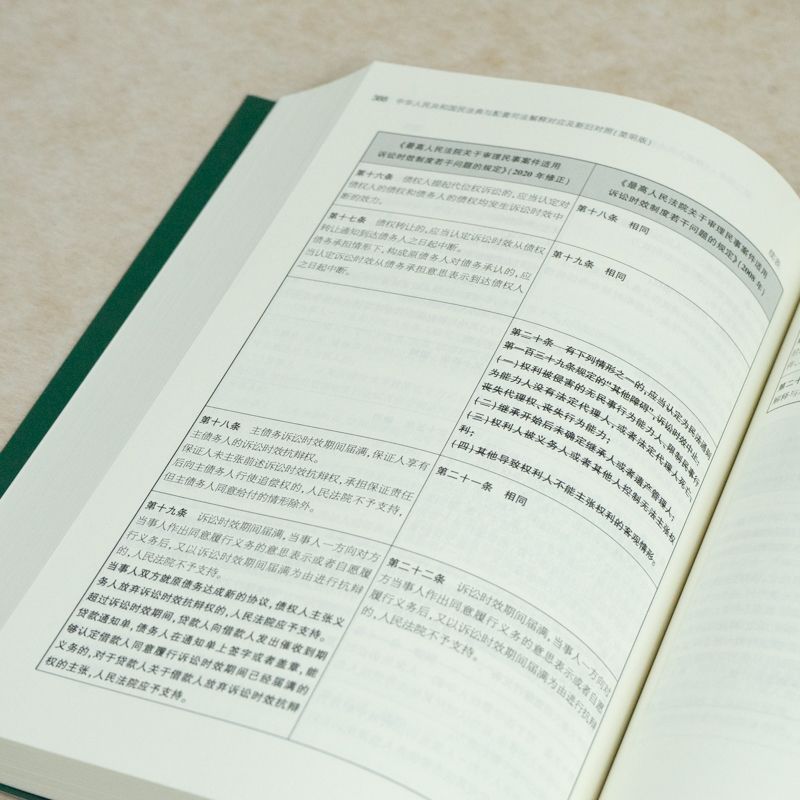 388 中华人民共和国民法典与配套司法解释对应及新旧对照(简明版)
续表
《最高人民法院关于审理民事案件适用
诉讼时效制度若干问题的规定》(2020 年修正)
《最高人民法院关于审理民事案件适用
诉讼时效制度若干问题的规定》(2008 年)
第十六条 债权人提起代位权诉讼的,应当认定对
债权人的债权和债务人的债权均发生诉讼时效中
断的效力。
第十八条 相同
第十七条 债权转让的,应当认定诉讼时效从债权
转让通知到达债务人之日起中断。
债务承担情形下,构成原债务人对债务承认的,应
当认定诉讼时效从债务承担意思表示到达债权人
之日起中断。
第十九条 相同
第二十条 有下列情形之一的,应当认定为民法通则
第一百三十九条规定的“其他障碍”,诉讼时效中止:
(一)权利被侵害的无民事行为能力人、限制民事行
为能力人没有法定代理人,或者法定代理人死亡、
丧失代理权、丧失行为能力;
(二)继承开始后未确定继承人或者遗产管理人;
(三)权利人被义务人或者其他人控制无法主张权
利;
(四)其他导致权利人不能主张权利的客观情形。
第十八条 主债务诉讼时效期间届满,保证人享有
主债务人的诉讼时效抗辩权。
保证人未主张前述诉讼时效抗辩权,承担保证责任
后向主债务人行使追偿权的,人民法院不予支持,
但主债务人同意给付的情形除外。
第二十一条 相同
第十九条 诉讼时效期间届满,当事人一方向对方
当事人作出同意履行义务的意思表示或者自愿履
行义务后,又以诉讼时效期间届满为由进行抗辩
的,人民法院不予支持。
当事人双方就原债务达成新的协议,债权人主张义
务人放弃诉讼时效抗辩权的,人民法院应予支持。
超过诉讼时效期间,贷款人向借款人发出催收到期
贷款通知单,债务人在通知单上签字或者盖章,能
够认定借款人同意履行诉讼时效期间已经届满的
义务的,对于贷款人关于借款人放弃诉讼时效抗辩
权的主张,人民法院应予支持。
第二十二条 诉讼时效期间届满,当事人一方向对
方当事人作出同意履行义务的意思表示或者自愿
履行义务后,又以诉讼时效期间届满为由进行抗辩
的,人民法院不予支持。